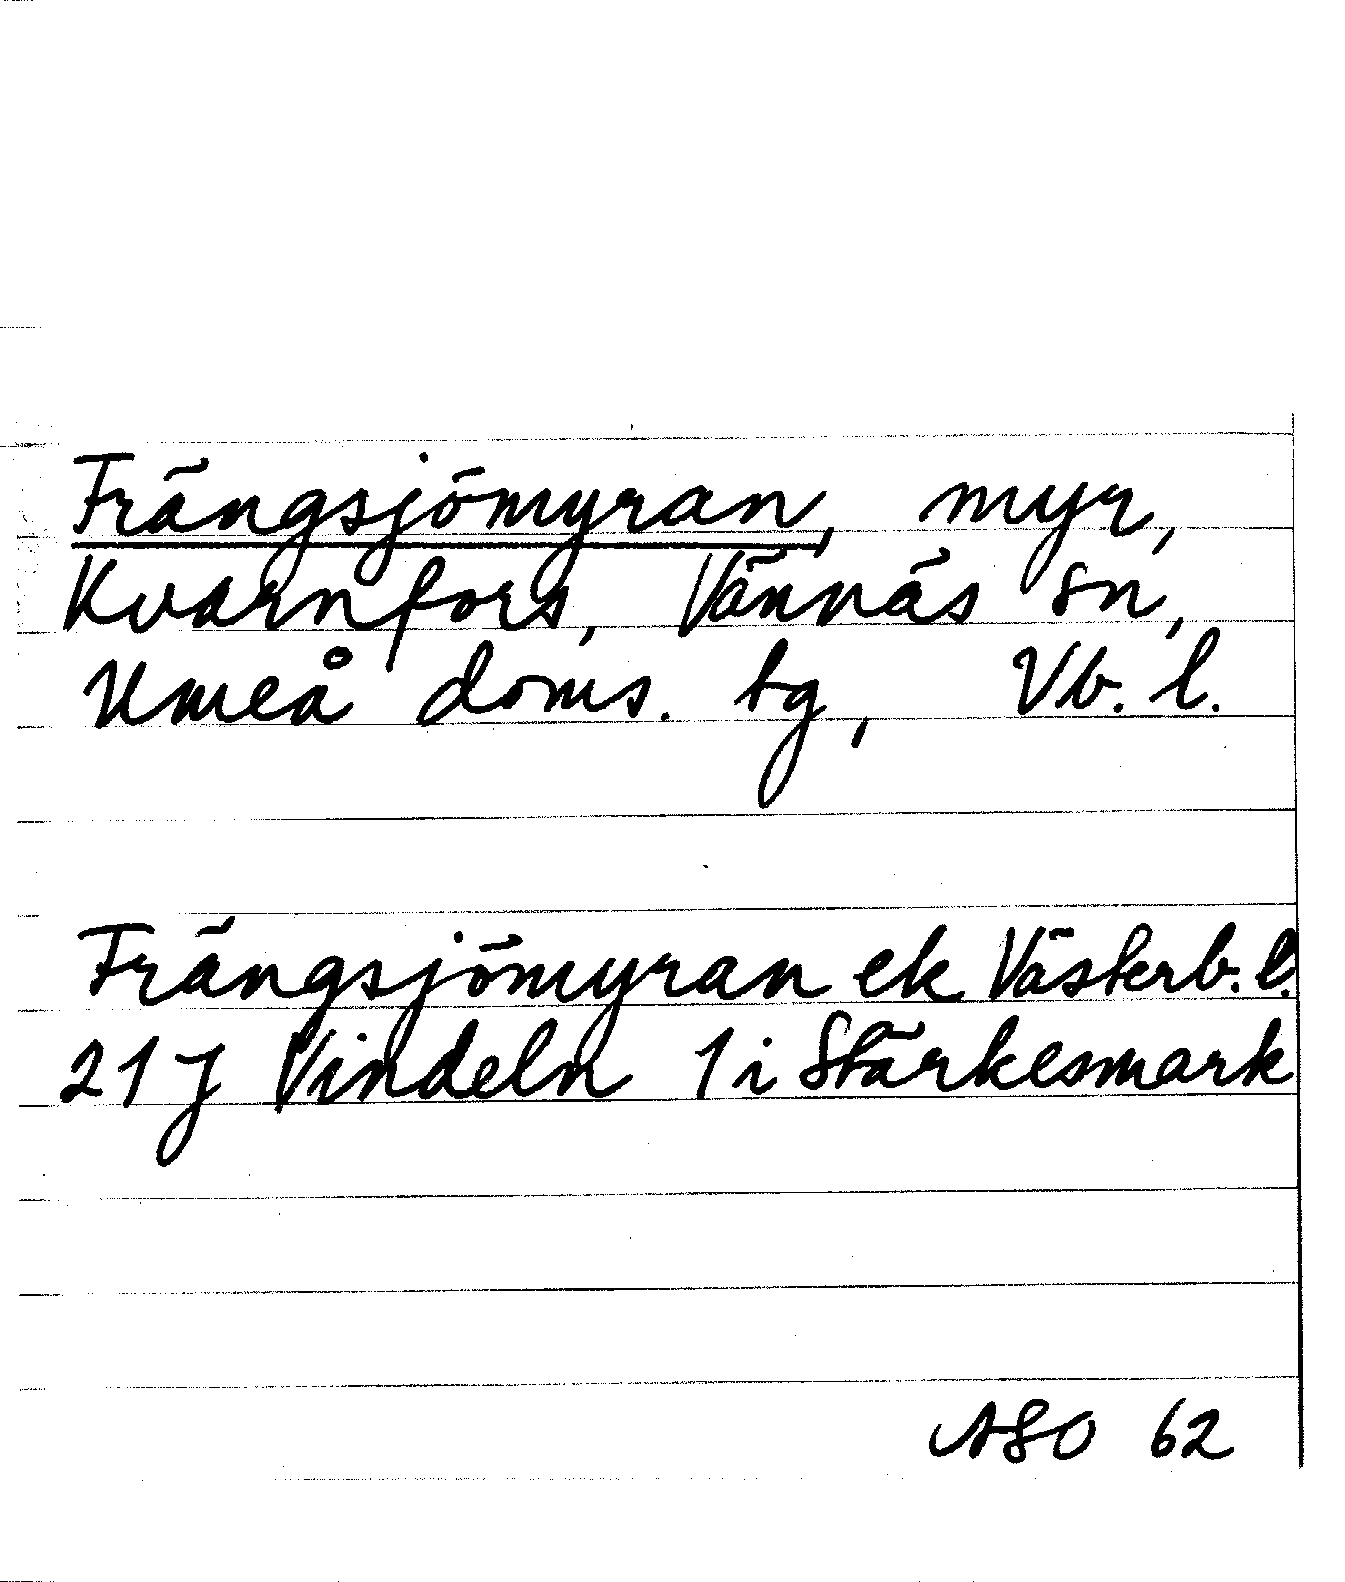 Frängsjömyran, myr,
Kvarnfors, Vännäs sn,
Umeå doms. tg, Vb. l.
Frängsjömyran ek Västerb. l.
21 J Vindeln 1 i Stärkesmark
ASO 62